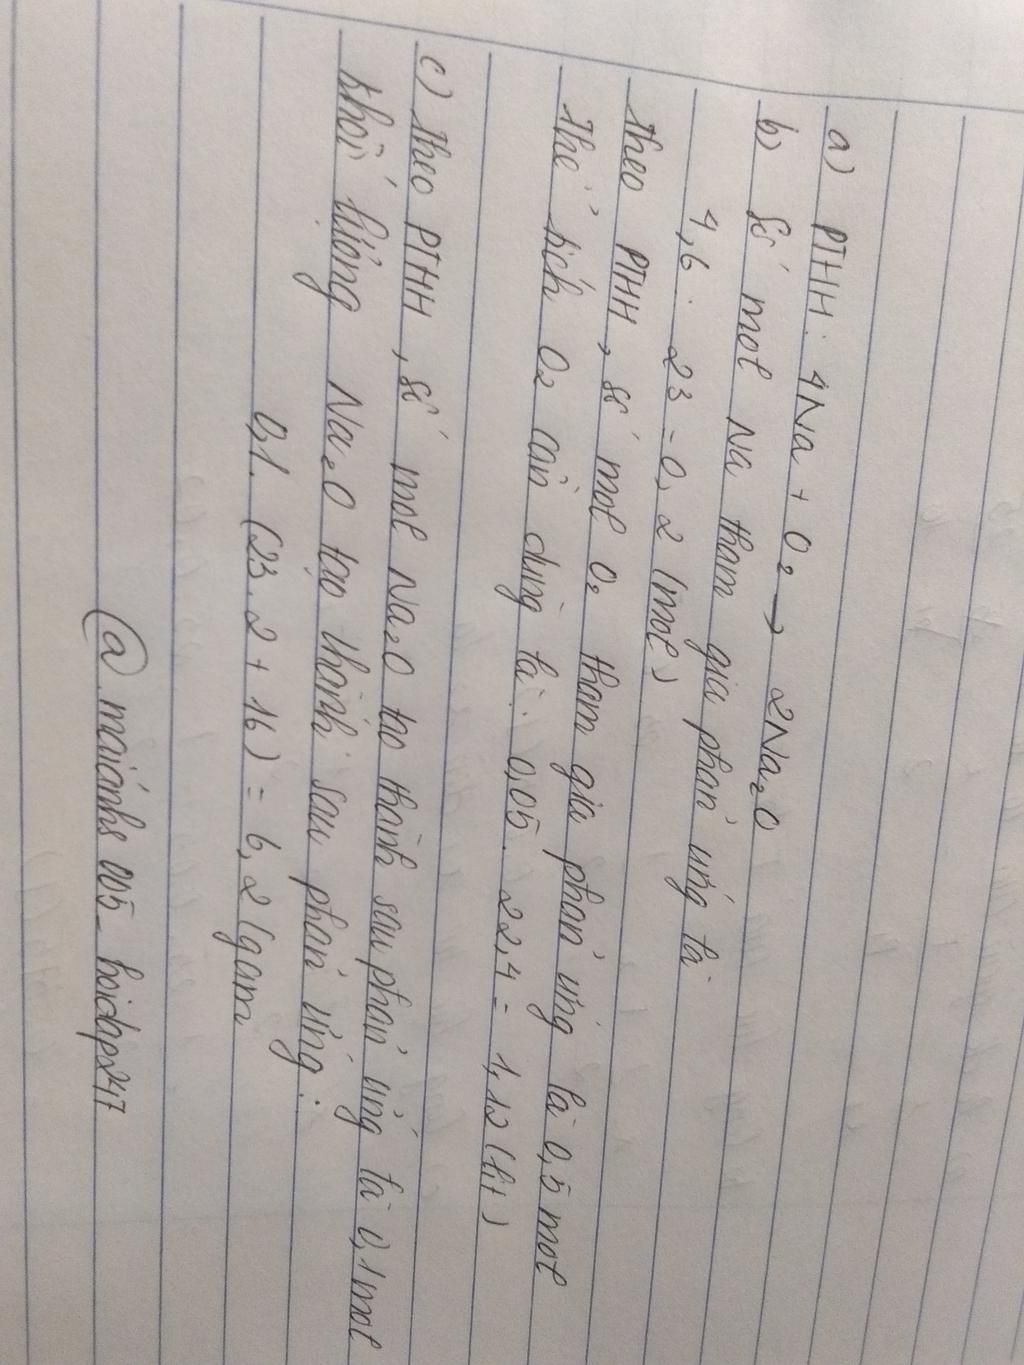 a) PTHH: 4Na + O₂ → 2Na₂O
b) Số mol Na tham gia phản ứng là
4,6 : 23 = 0,2 (mol)
theo PTHH, số mol O₂ tham gia phản ứng là 0,5 mol
thể tích O₂ cần dùng là: 0,05. 22,4 = 1,12 (lít)
c) theo PTHH, số mol Na₂O tạo thành sau phản ứng là 0,1 mol
khối lượng Na₂O tạo thành sau phản ứng:
0,1. (23. 2 + 16) = 6,2 (gam
@ maianhs005_hoidap247